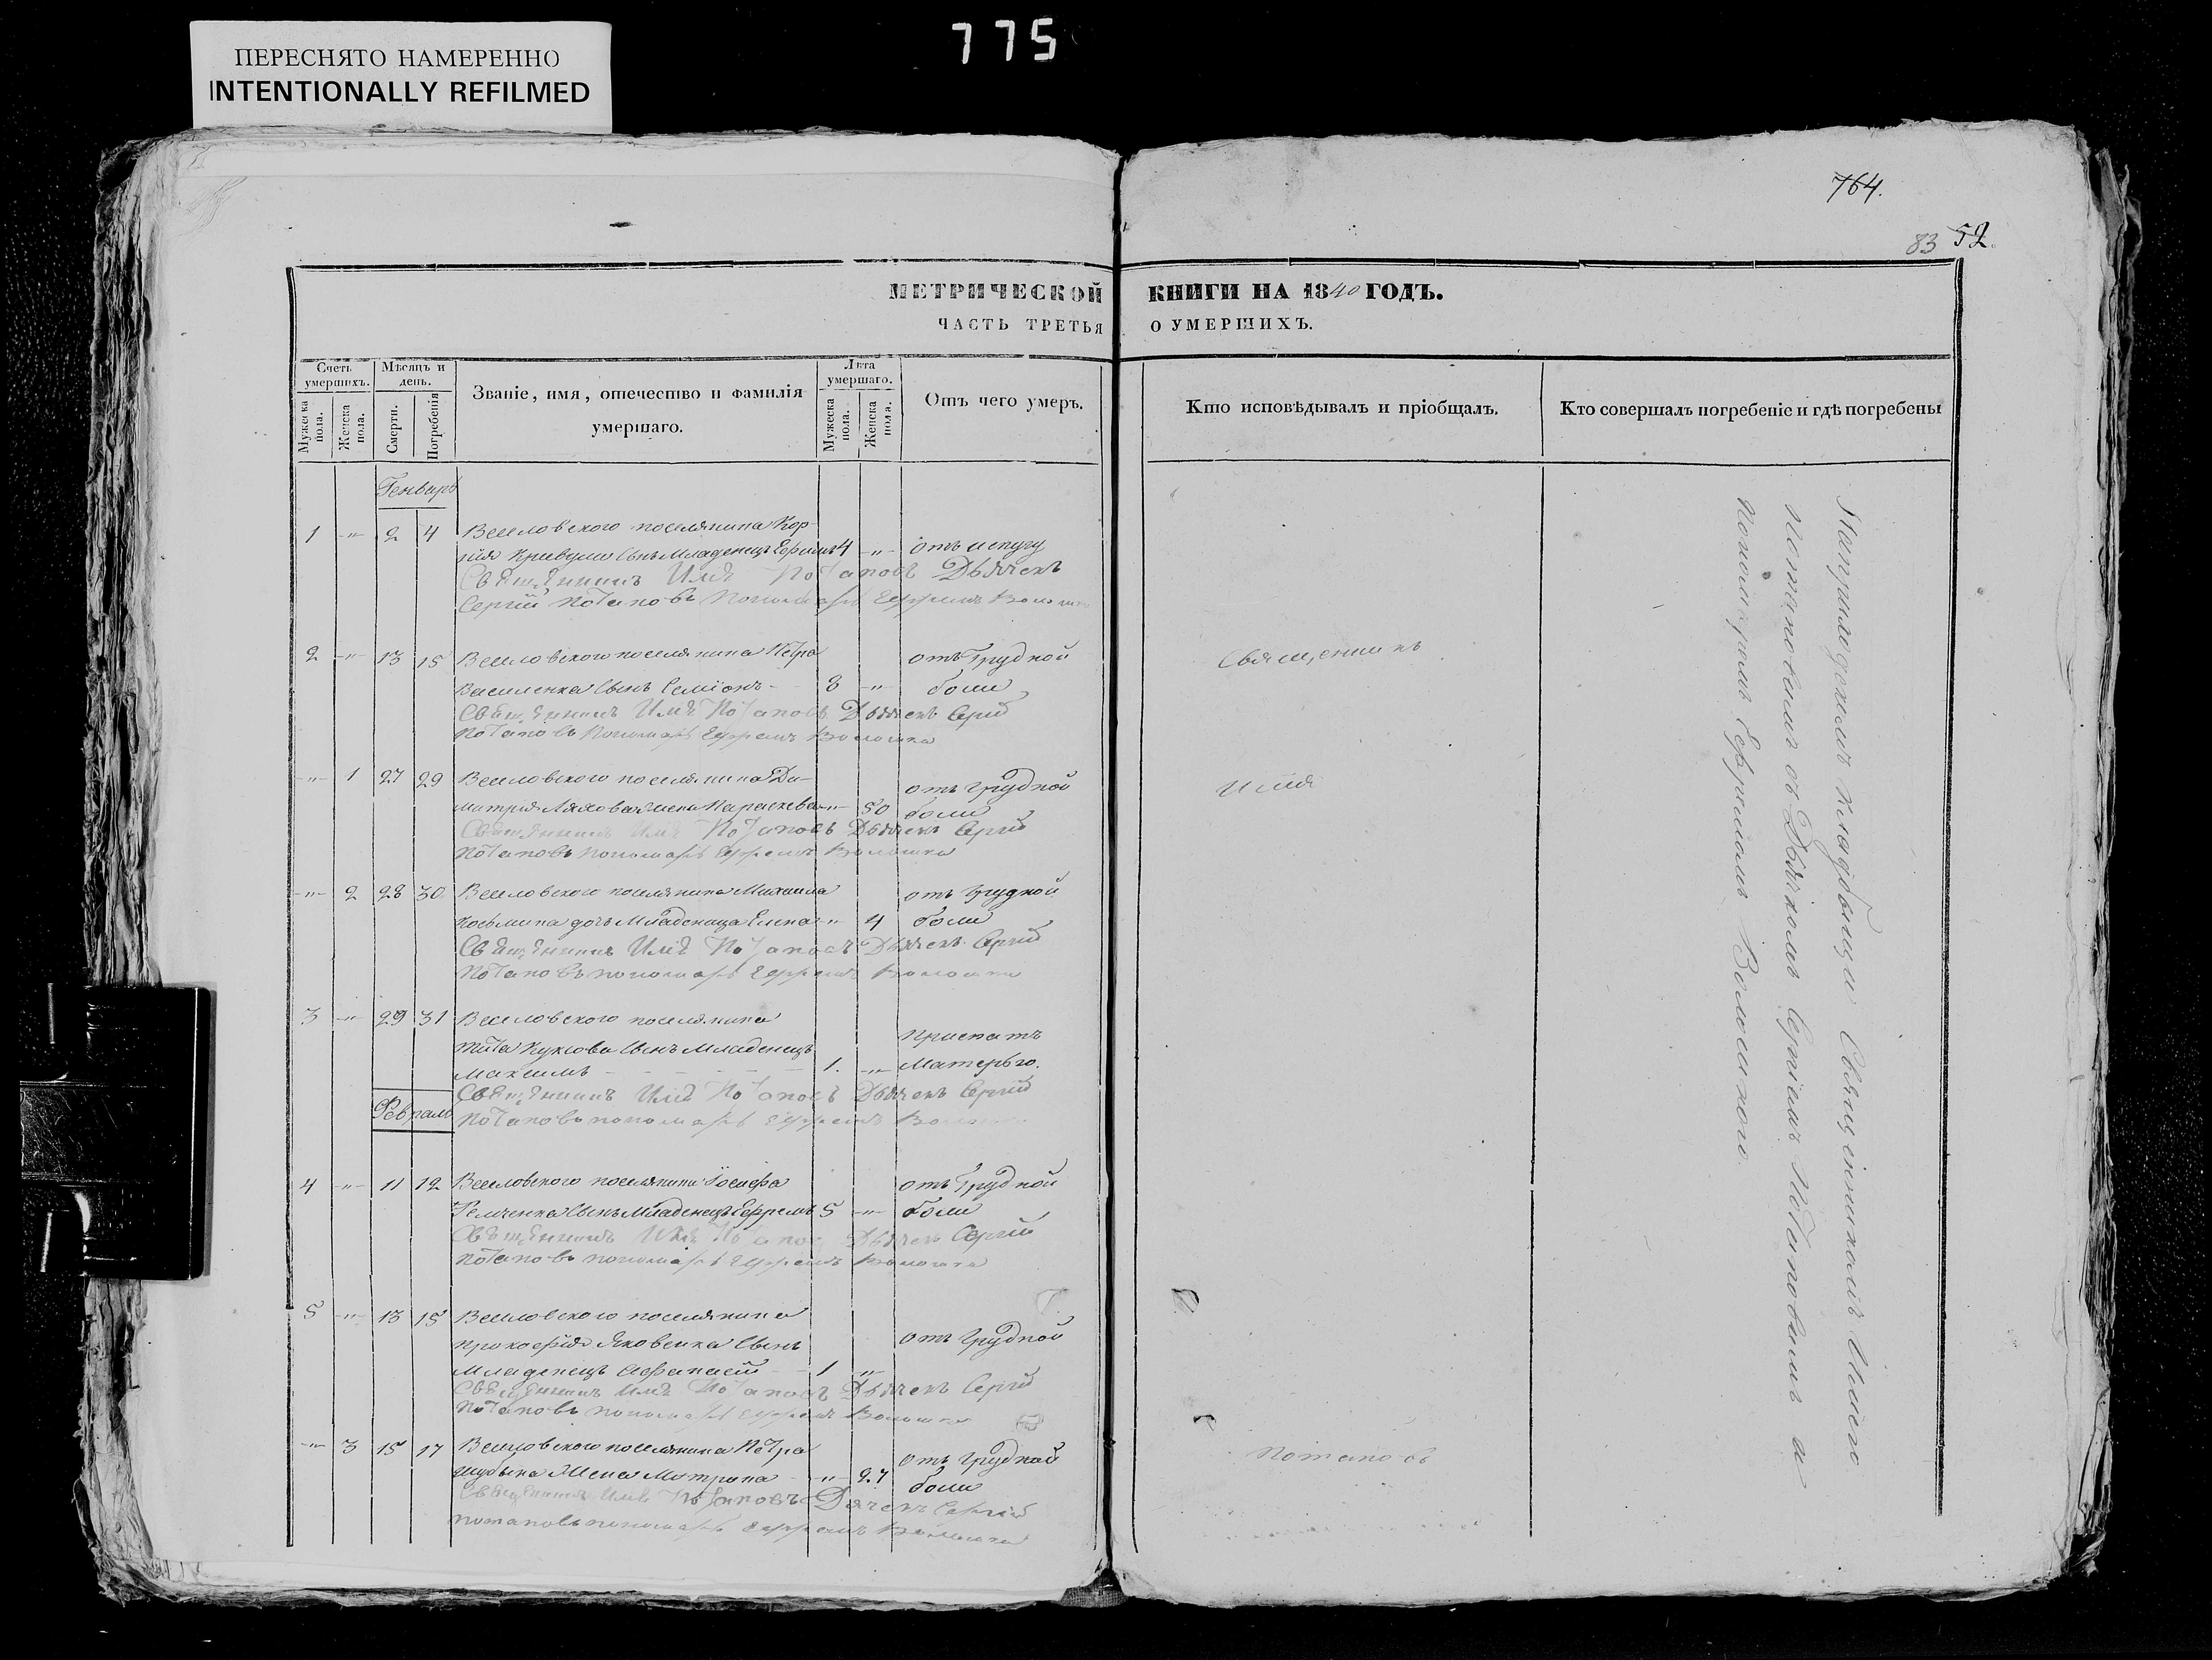 775
ПЕРЕСНЯТО НАМЕРЕННО
INTENTIONALLY REFILMED
764.
83 52.
МЕТРИЧЕСКОЙ КНИГИ НА 1840 ГОДЪ.
ЧАСТЬ ТРЕТЬЯ О УМЕРШИХЪ.
Счетъ умершихъ.
Мужеска пола.
Женска пола.
Мѣсяцъ и день.
Смерти.
Погребенія
Званіе, имя, отечество и фамилія умершаго.
Лѣта умершаго.
Мужеска пола.
Женска пола.
Отъ чего умеръ.
Кто исповѣдывалъ и пріобщалъ.
Кто совершалъ погребеніе и гдѣ погребены
Генварь
1 -"- 2 4 Веселовского поселянина
сынъ Младенецъ Ефимъ 4 -"- отъ испугу
Священникъ Илія Потаповъ Дьячекъ
Сергій Потаповъ Пономарь Ефремъ
2 -"- 13 15 Веселовского поселянина Петра отъ грудной
Василенка сынъ Семіонъ - 8 -"- боли
Священникъ Илія Потаповъ Дьячекъ Сергій
Потаповъ Пономарь Ефремъ Волошка
-"- 1 27 29 Веселовского поселянина Ди-
митрія Ляховая жена Параскева -"- 50 отъ грудной боли
Священникъ Илія Потаповъ Дьячекъ Сергій
Потаповъ Пономарь Ефремъ Волошка
-"- 2 28 30 Веселовского поселянина Михаила отъ грудной
Косьмина дочь Младеница Елена -"- 4 боли
Священникъ Илія Потаповъ Дьячекъ Сергій
Потаповъ пономарь Ефремъ Волошка
3 -"- 29 31 Веселовского поселянина
Тита сынъ Младенецъ приспатъ
Максимъ - - - - 1. -"- Матерью.
Священникъ Илія Потаповъ Дьячекъ Сергій
Потаповъ пономарь Ефремъ
Февраль
4 -"- 11 12 Веселовского поселянина Іосифа отъ грудной
сынъ Младенецъ Ефремъ 5 -"- боли
Священникъ Илія Потаповъ Дьячекъ Сергій
Потаповъ пономарь Ефремъ Волошка
5 -"- 13 15 Веселовского поселянина
Прокофія Яковенка сынъ отъ грудной
Младенецъ Афанасій - 1 "
Священникъ Илія Потаповъ Дьячекъ Сергій
Потаповъ пономарь Ефремъ Волошка
-"- 3 15 17 Веселовского поселянина Петра отъ грудной
жена Мотрона -"- 27 боли
Священникъ Илія Потаповъ Дячекъ Сергій
Потаповъ пономарь Ефремъ Волошка
Священникъ
Илія
Потаповъ
кладбищи Священникомъ Иліею
Потаповымъ съ Дьячкомъ Сергіемъ Потаповымъ и
Пономаремъ Ефремомъ Волошкою.